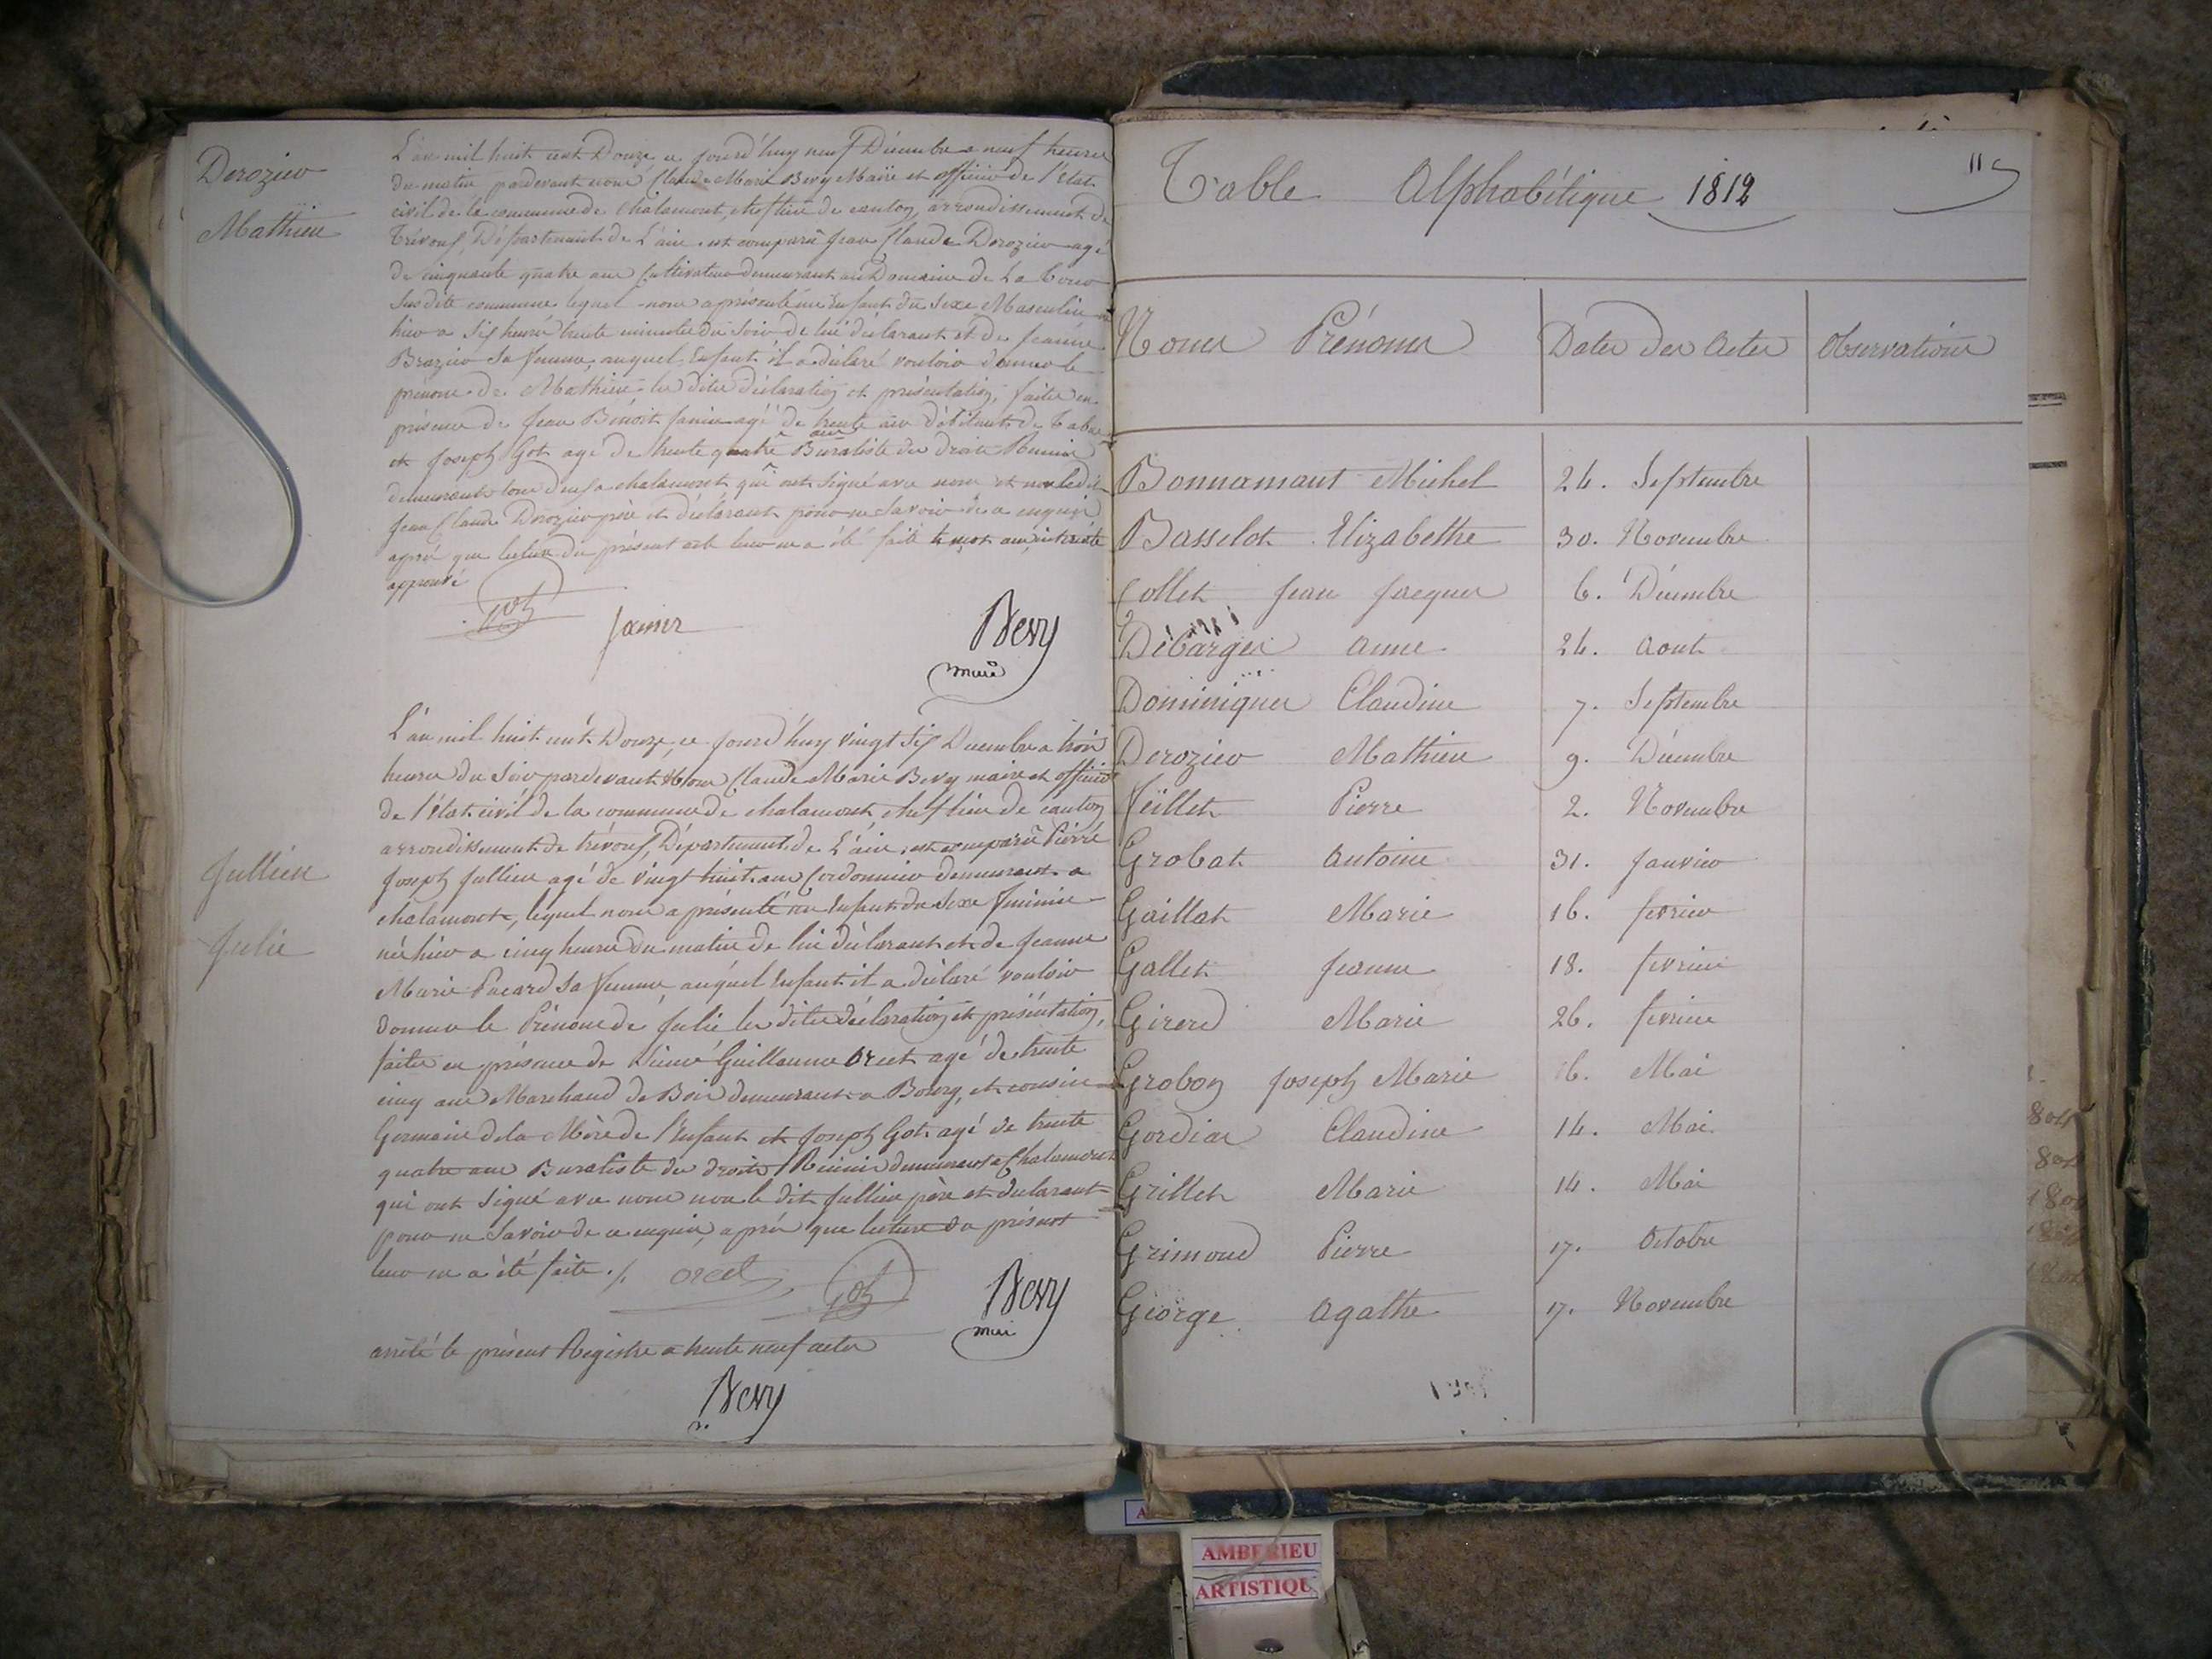 Derozier
Mathieu
L'an mil huit cent Douze ce jourd'huy neuf Décembre a neuf heures
du matin pardevant nous Claude Marie Bevy Maire et officier de l'état
civil de la commune de chalamont, cheflieu de canton, arrondissement de
Trévoux, Département de L'ain est comparû Jean Claude Derozier agé
de cinquante quatre ans Cultivateur demeurant au Domaine de La
susdite commune lequel nous a présenté un Enfant du Sexe Masculin né
hier a six heures trente minutes du soir de lui déclarant et de jeanne
Brazier sa femme, auquel Enfant il a déclaré vouloir donner le
prénom de Mathieu les dites déclaration et présentation, faites en
présence de Jean Benoit Janin agé de trente ans débitant de Tabac
et Joseph Got agé de trente quatre ans Buraliste des droits Réunis
demeurants tous deux a chalamont qui ont signé avec nous et non le dit
Jean Claude Derozier père et déclarant pour ne savoir de ce enquis
après que lecture du présent acte leur en a été faite le mot ans interligne
approuvé
Got
Janin
Bevy
maire
Jullien
Julie
L'an mil huit cent Douze, ce jourd'huy vingt six Decembre a trois
heures du soir pardevant Nous Claude Marie Bevy maire et officier
de l'état civil de la commune de chalamont, cheflieu de canton
arrondissement de trévoux, Département de L'ain, est comparû Pierre
Joseph Jullien agé de vingt huit ans Cordonnier demeurant a
chalamont, lequel nous a présenté un Enfant du Sexe féminin
né hier a cinq heures du matin de lui déclarant et de Jeanne
Marie Pacard sa femme auquel Enfant il a déclaré vouloir
donner le Prénom de Julie les dites déclaration et présentation,
faites en présence de Guillaume Orcet agé de trente
cinq ans Marchand de Bois demeurant a Bourg, et cousin
Germain de la Mère de l'Enfant et Joseph Got agé de trente
quatre ans Buraliste des droits Réunis demeurant a Chalamont
qui ont signé avec nous non le dit Jullien père et déclarant
pour ne savoir de ce enquis, après que lecture du présent
leur en a été faite ./.
orcet
Got
Bevy
maire
arrêté le présent Registre a trente neuf actes
Bevy
m.
Table Alphabétique 1812
115
Noms Prénoms Dates des Actes Observations
Bonnamant Michel 24. Septembre
Basselot Elizabethe 30. Novembre
Collet Jean Jacques 6. Décembre
Débarges anne 24. Aout
Dominiques Claudine 7. Septembre
Derozier Mathieu 9. Décembre
Feillet Pierre 2. Novembre
Grobat Antoine 31. Janvier
Gaillat Marie 16. fevrier
Gallet Jeanne 18. fevrier
Girerd Marie 26. fevrier
Grobon Joseph Marie 6. Mai
Gordiar Claudine 14. Mai
Grillet Marie 14. Mai
Grimoud Pierre 17. Octobre
Giorge Agathe 17. Novembre
AMBERIEU
ARTISTIQU